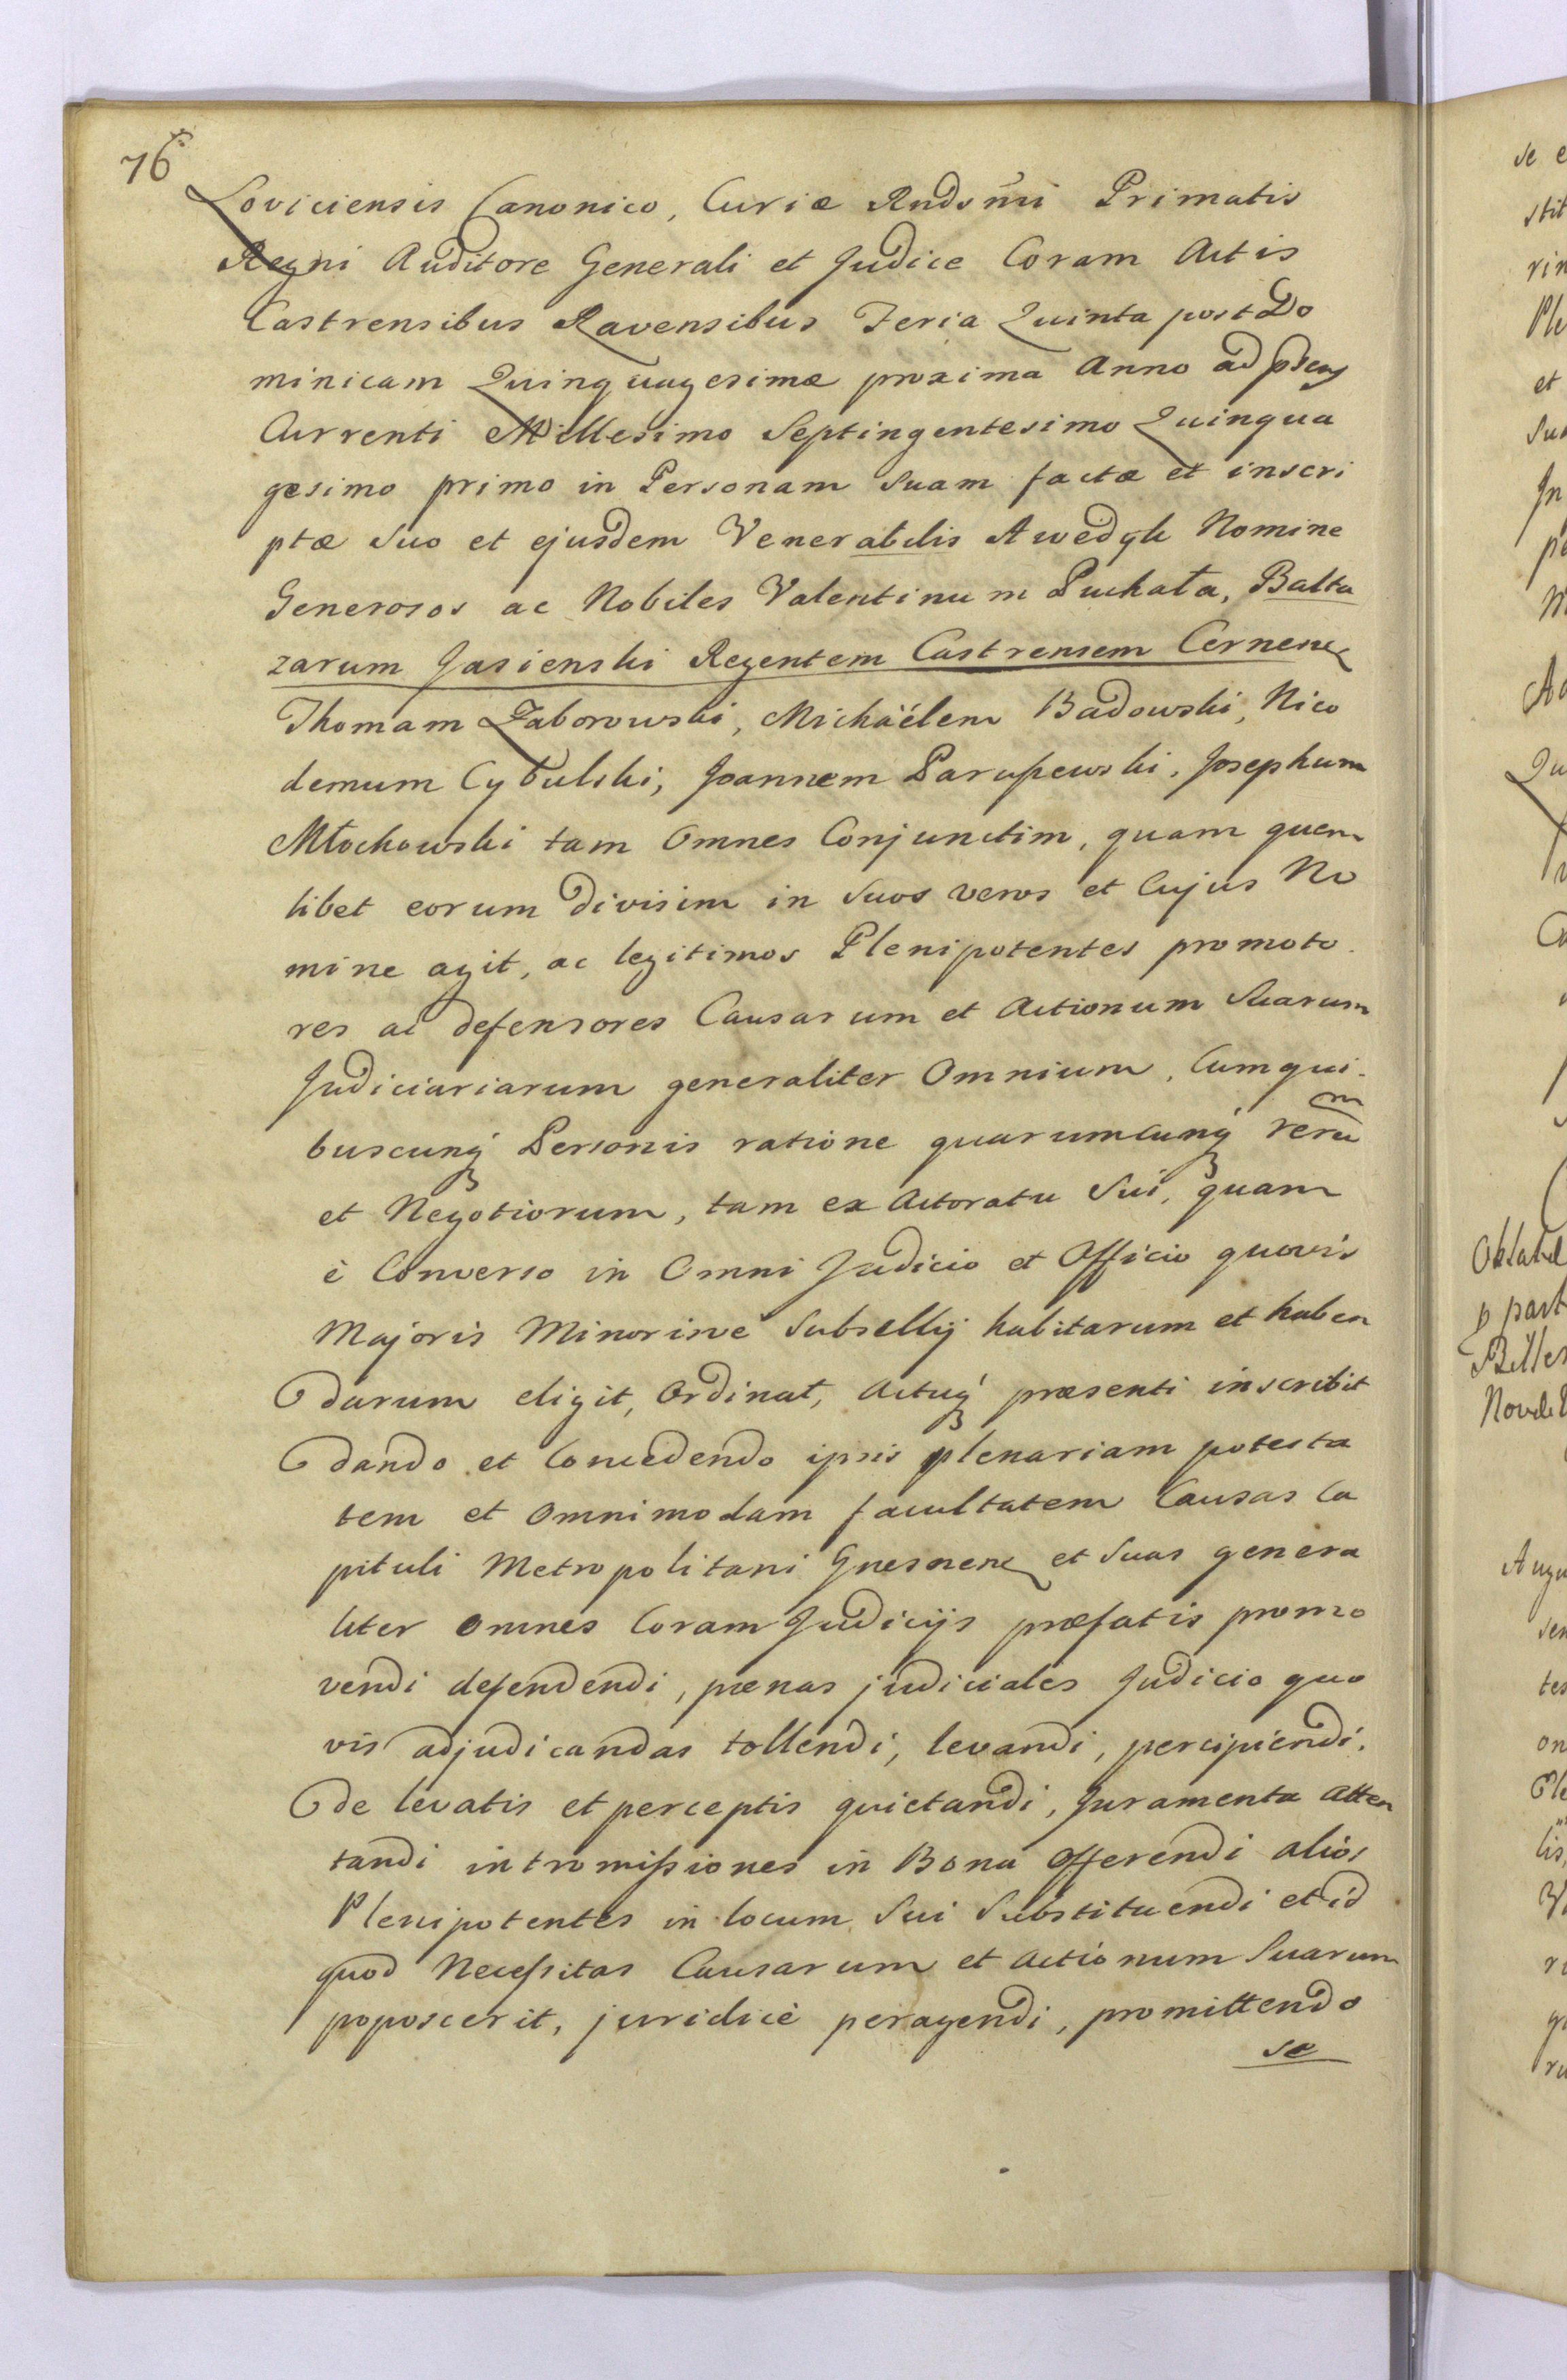 76
Loviciensis Canonico, Curiæ Rndsmi Primatis
Regni Auditore Generali et Judice Coram Actis
Castrensibus Ravensibus Feria Quinta post Do
minicam Quinquagesimæ proxima Anno ad præns
Currenti Millesimo Septingentesimo Quinqua
gesimo primo in Personam Suam factæ et inscri
ptæ Suo et ejusdem Venerabilis Awedyk Nomine
Generosos ac Nobiles Valentinum Puchała, Balta
zarum Jasienski Regentem Castrensem Cernenen
Thomam Zaborowski, Michäélem Badowski, Nico
demum Cybulski, Joannem Parußewski, Josephum
Młochowski tam Omnes Conjunctim, quam quem
libet eorum divisim in Suos veros et Cujus No
mine agit, ac legitimos Plenipotentes promoto
res ac defensores Causarum et Actionum Suarum
Judiciariarum generaliter Omnium, Cum qui-
buscunq Personis ratione quarumcunq rerum
et Negotiorum, tam ex Actoratu Sui, quam
è Converso in Omni Judicio et Officio quovis
Majoris Minorisve Subsellij habitarum et haben
darum eligit, Ordinat, Actuq præsenti inscribit
dando et Concedendo ipsis plenariam potesta
tem et Omnimodam facultatem Causas Ca
pituli Metropolitani Gnesnen et Suas genera
liter Omnes Coram Judicijs præfatis promo
vendi defendendi, pœnas judiciales Judicio quo
vis adjudicandas tollendi, levandi, percipiendi.
de levatis et perceptis quietandi, Juramenta Atten
tandi intromißiones in Bona Offerendi alios
Plenipotentes in locum Sui Substituendi et id
quod Neceßitas Causarum et Actionum Suarum
poposcerit, juridicè peragendi, promittendo
se